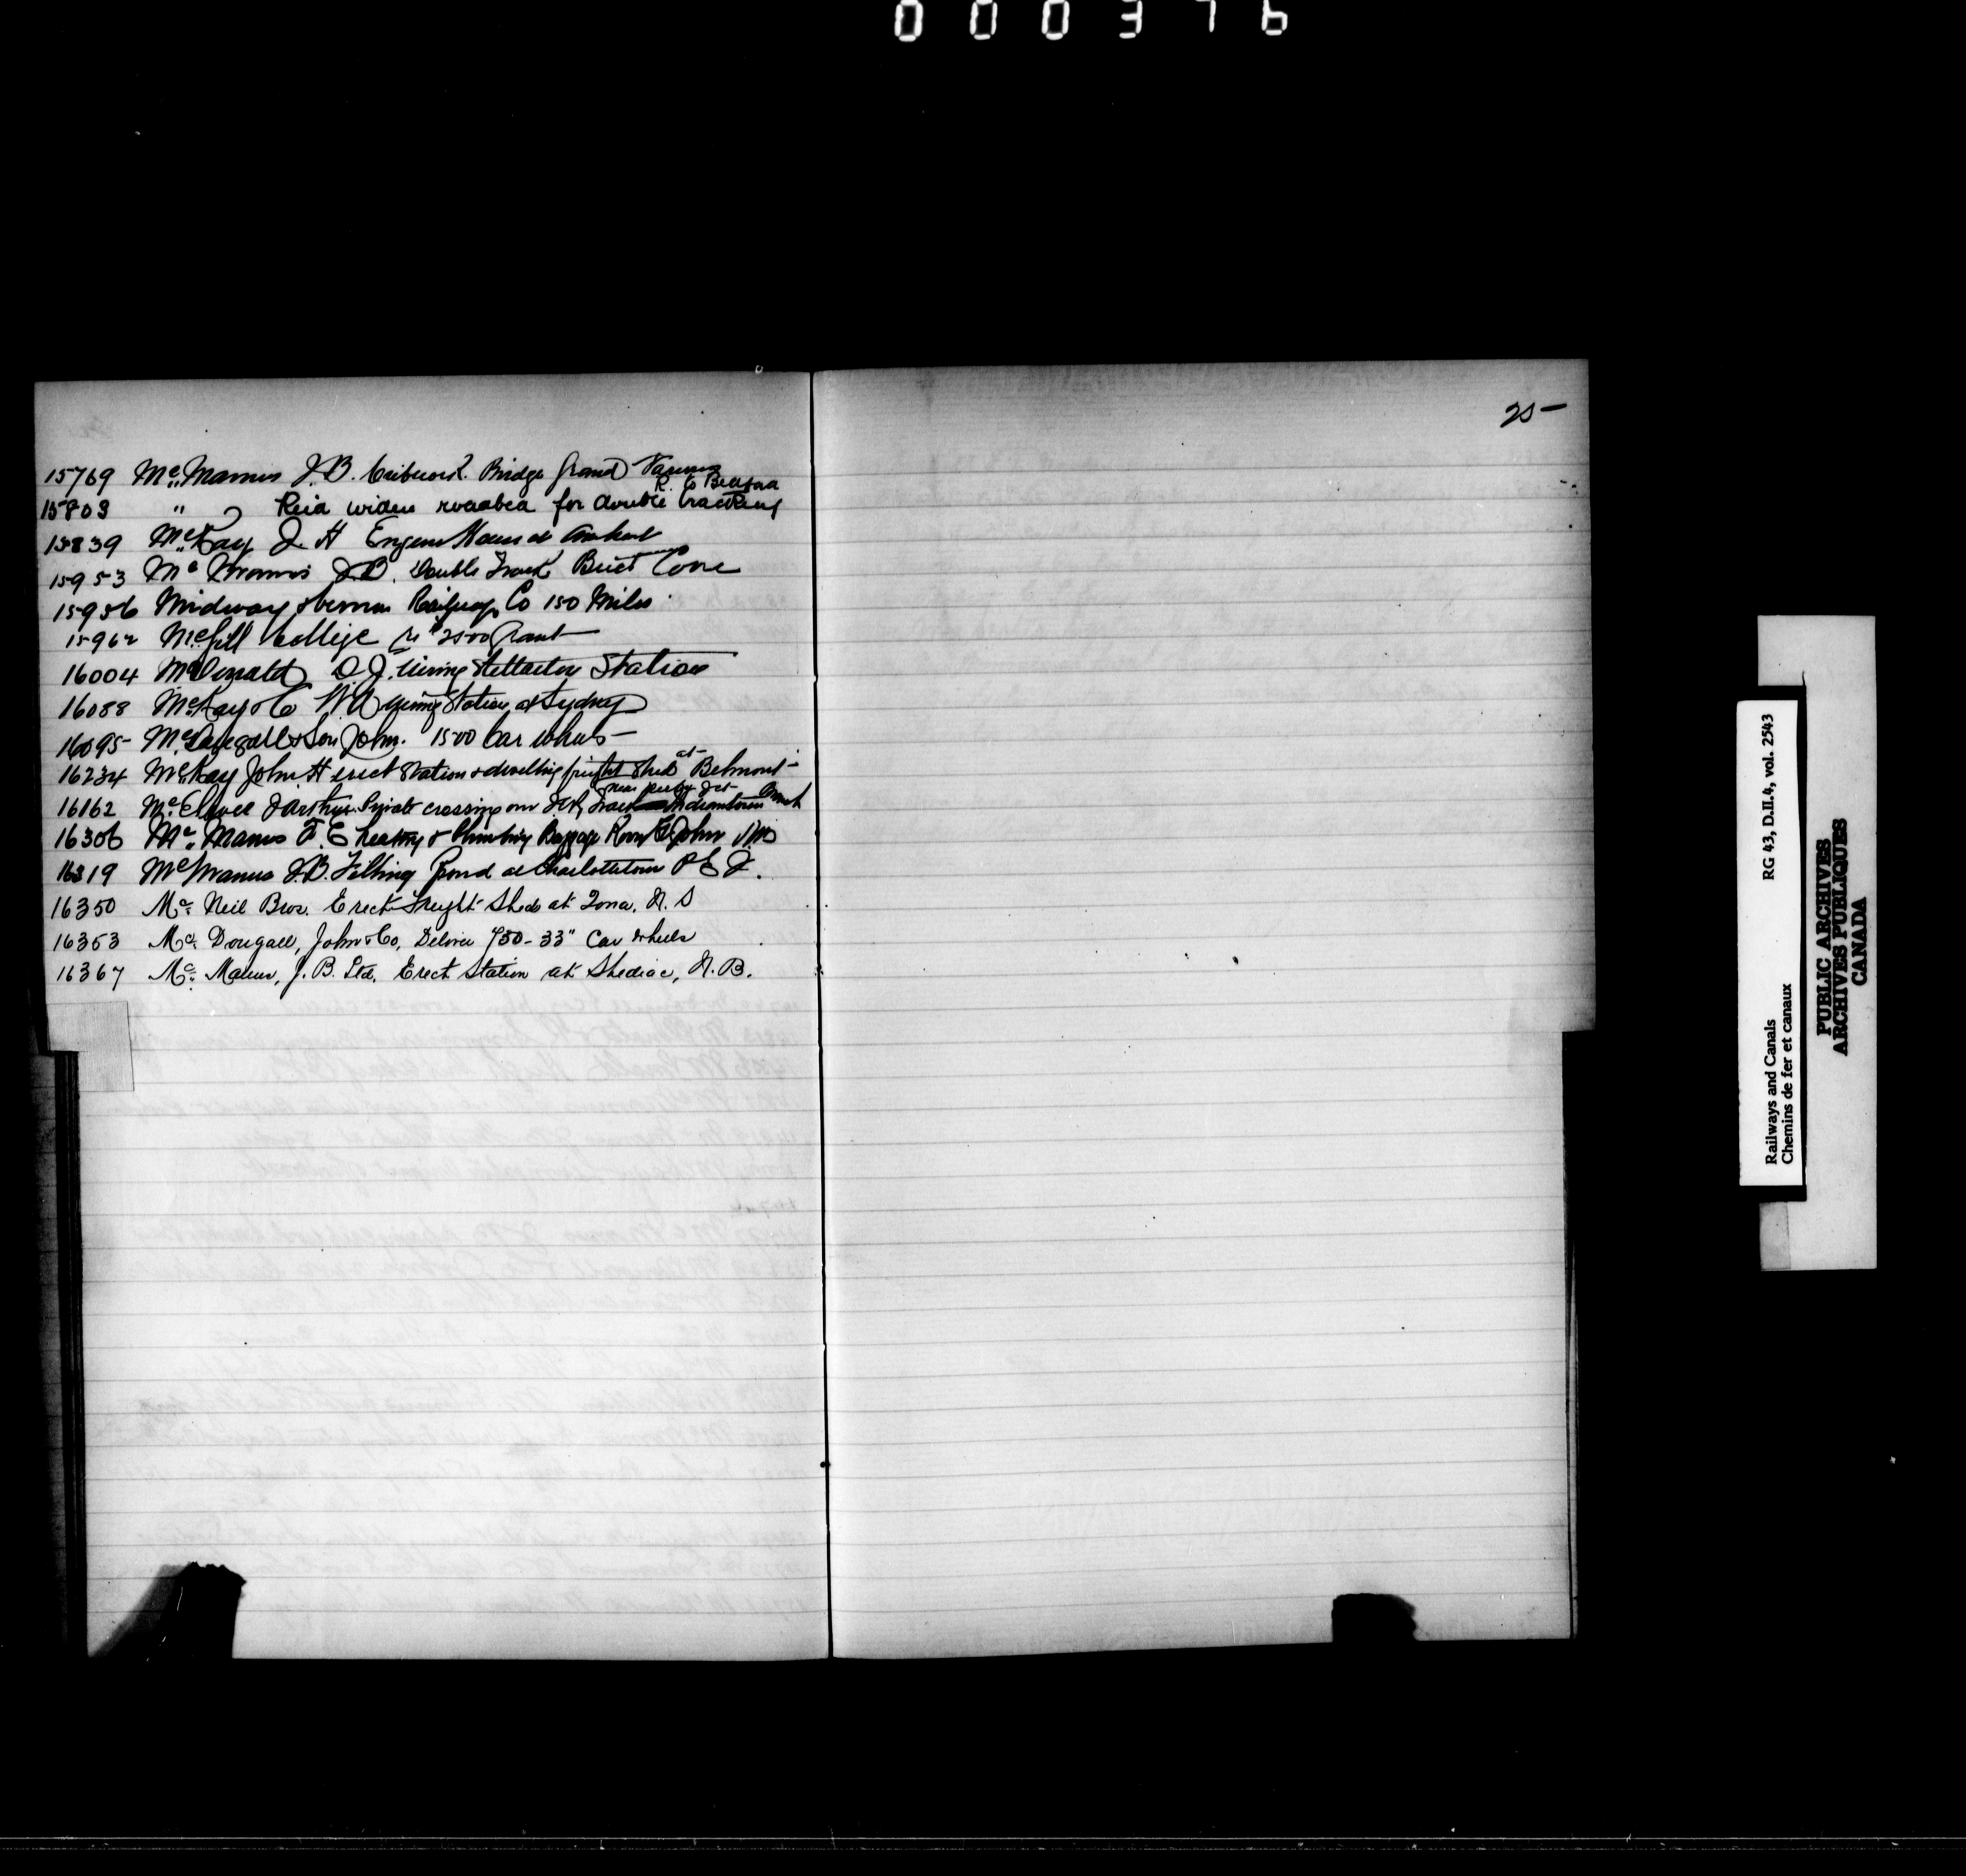 000376
25-
15769 Mc Manus J.B. Cribwork Bridge Grand
R. to Bedford
15803 " Reid widen roadbed for double tracking
15839 McKay J. H Engine House at Amherst
15953 Mc Manus J.B. Double Track Cove
15956 Midway & Vernon Railway Co 150 Miles
15962 McGill College re $2500 Grant
16004 McDonald D.J. Wiring Stellarton Station
16088 McKay & Co W.A Station at Sydney
16095 McDougall & Son John. 1500 Car Wheels
at
16234 McKay John H erect Station & dwelling freight Shed Belmont
near Jct Branch
16162 Arthur Private crossing over Track
16306 Mc Manus F. E heating & Plumbing Baggage Room St John N B
16319 McManus J.B. Filling Pond at Charlottetown P E I.
16350 Mc Neil Bros. Erect Freight Shed at Iona, N. S
16353 Mc Dougall, John & Co, Deliver 750-33" Car Wheels
16367 Mc Manus, J. B. Ltd. Erect Station at Shediac, N. B.
Railways and Canals RG 43, D.II.4, vol. 2543
Chemins de fer et canaux
PUBLIC ARCHIVES
ARCHIVES PUBLIQUES
CANADA